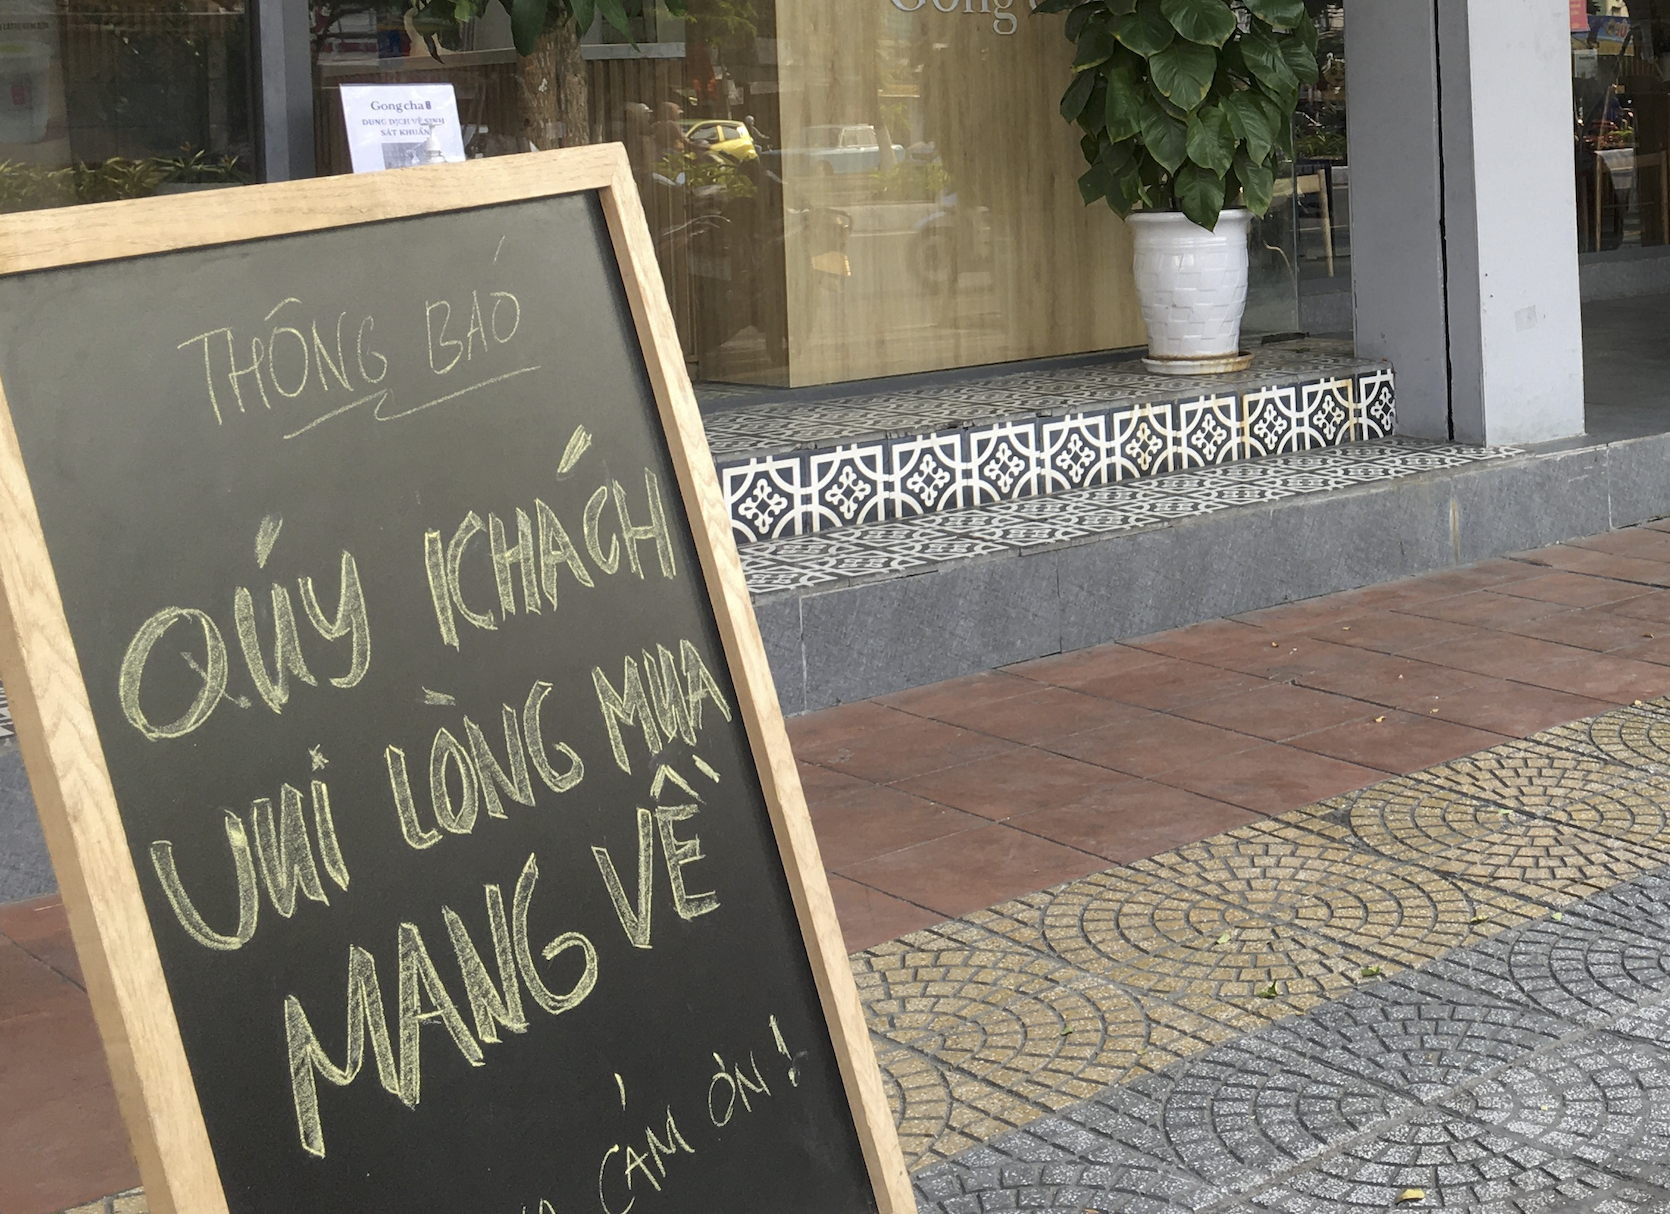 Gong c
Gong cha
DUNG DỊCH VỆ SINH
SÁT KHUẨN
THÔNG BÁO
QUÝ KHÁCH
VUI LÒNG MUA
MANG VỀ
CẢM ƠN!